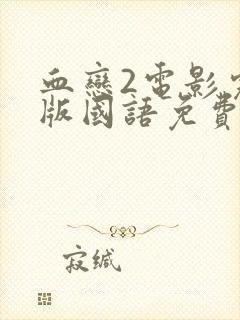 血戀2電影完
版國語免費
寂缄